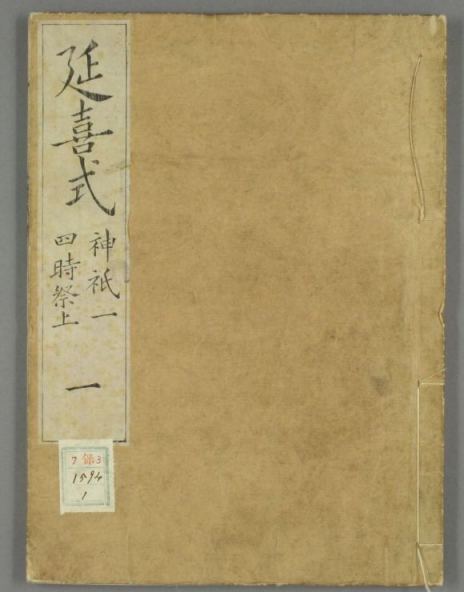 延喜式
神祇一
四時祭上
一
7 保3
1594
1